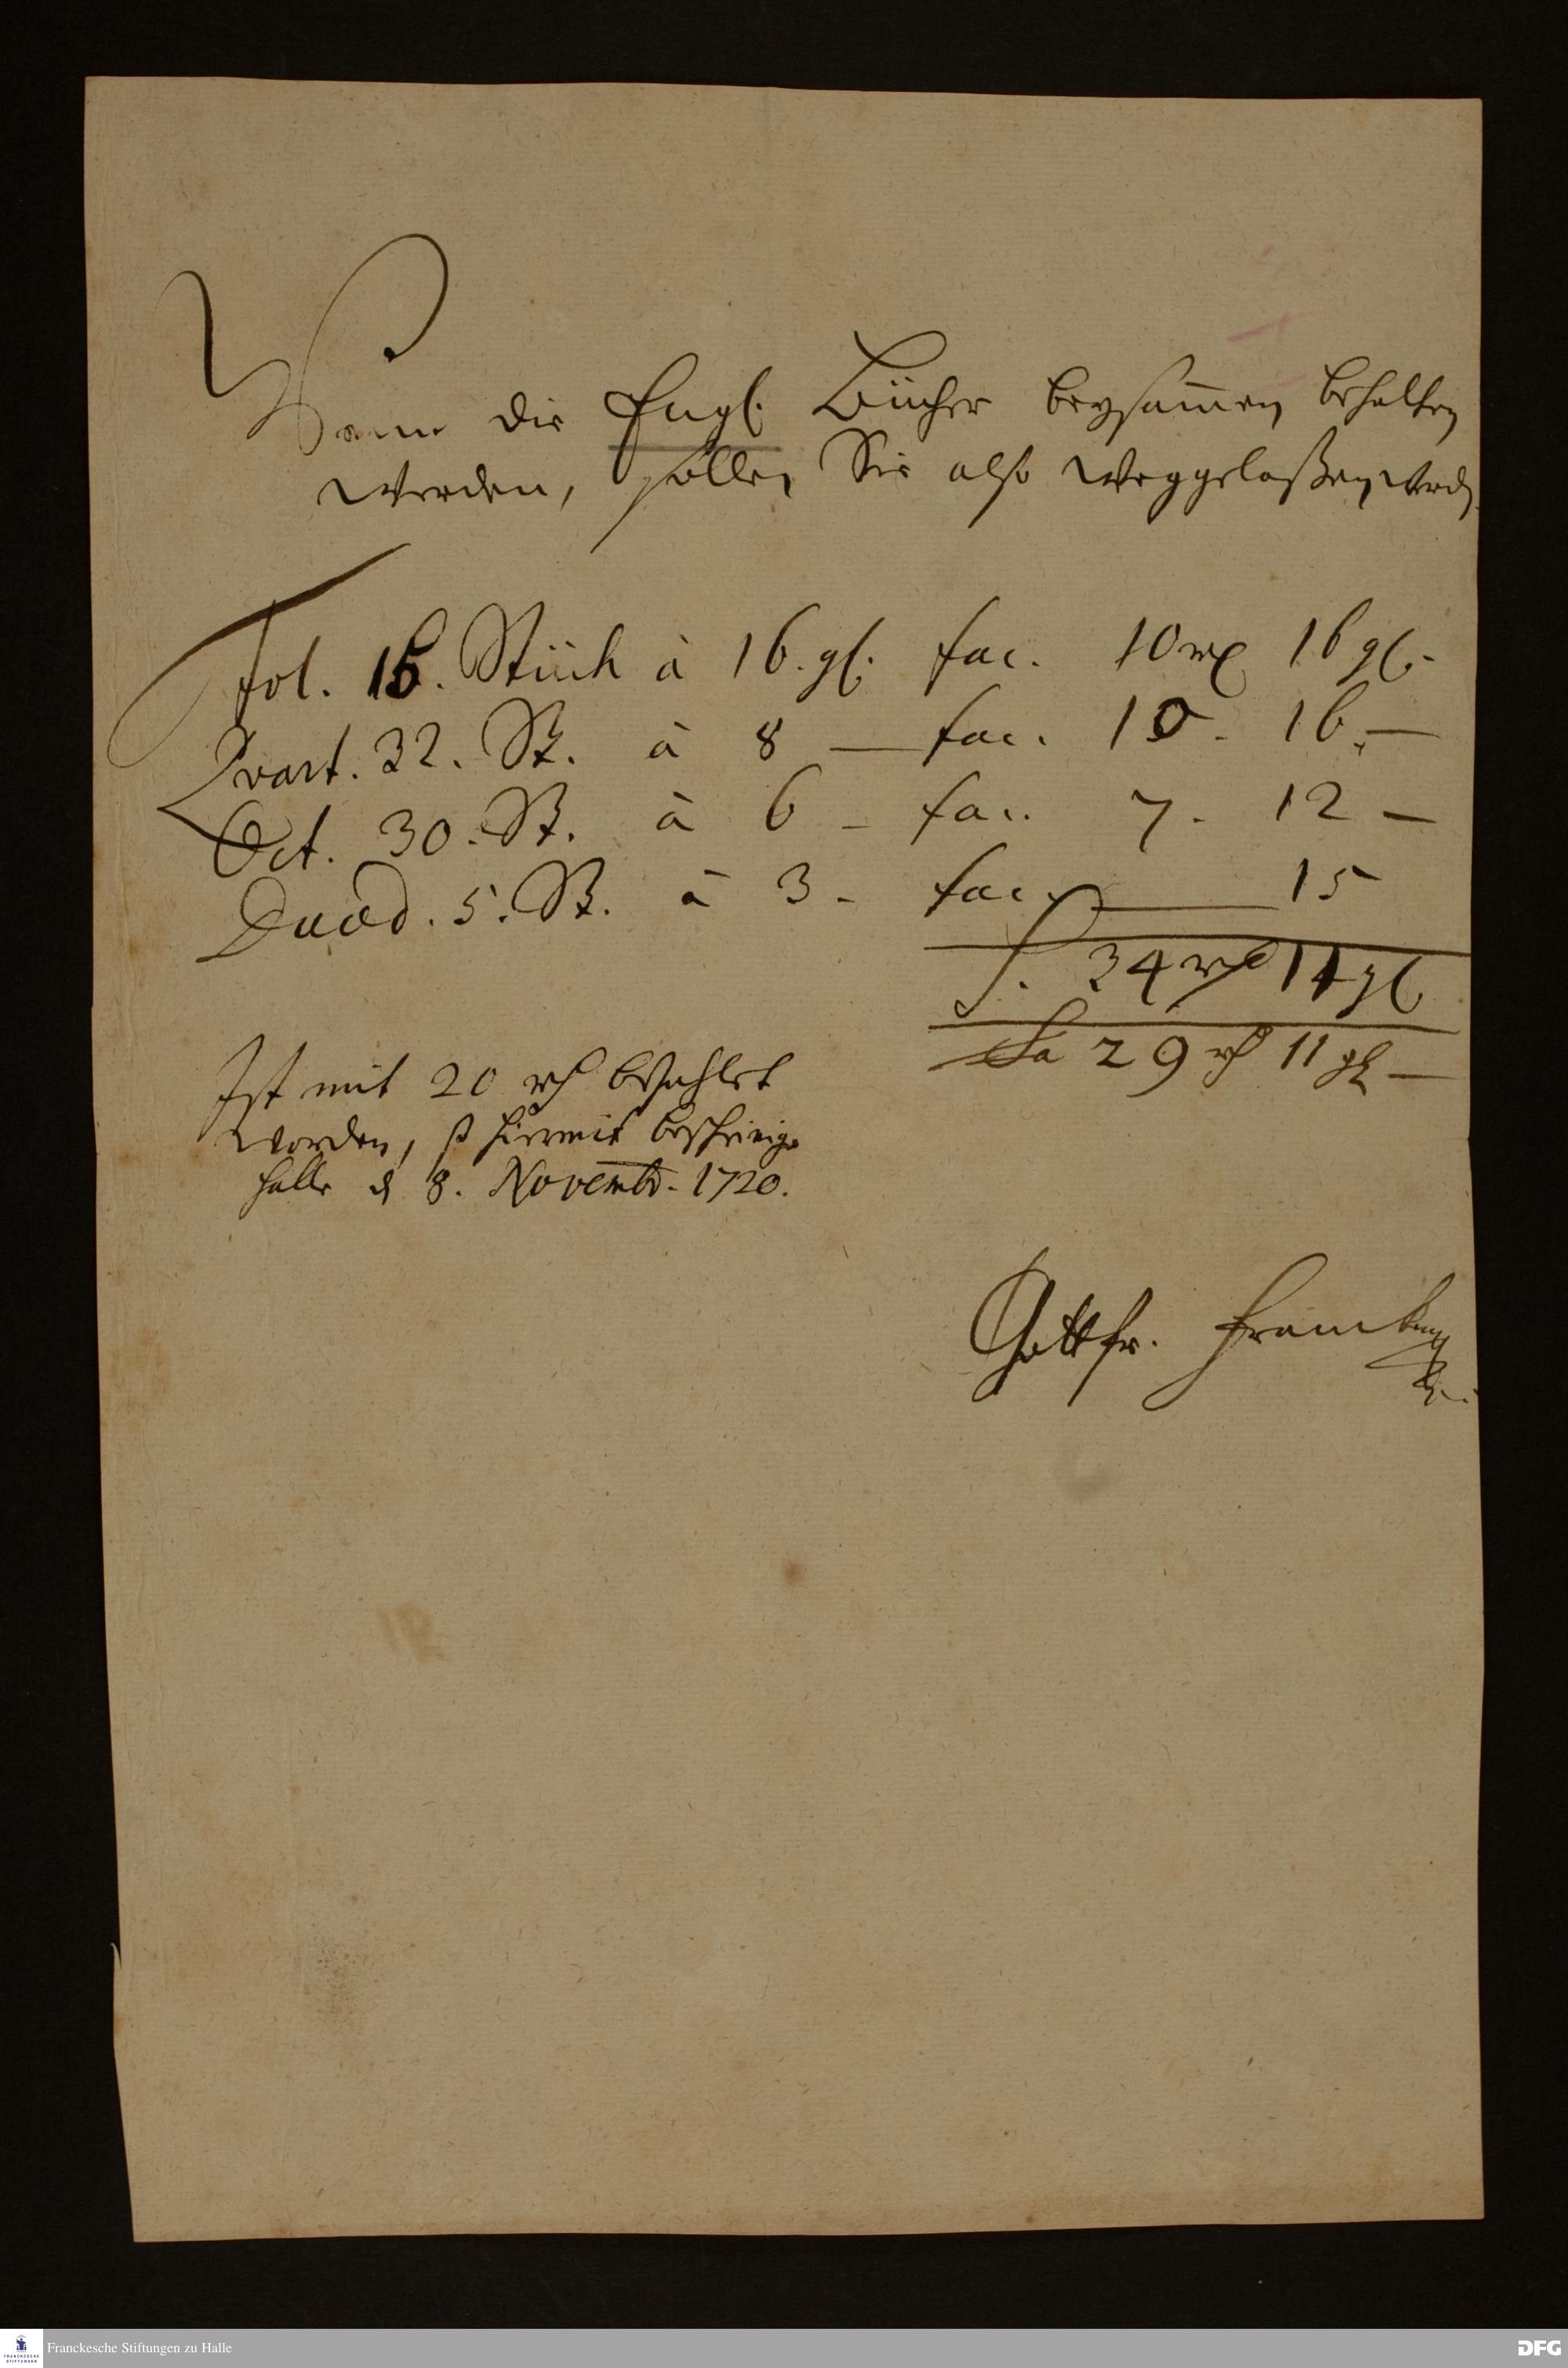 Wenn die Engl. Bücher beysam̄en behalten
werden, sollen Sie also weggelaßen werdn
Fol. 16. Stück à 16. gl. fac. 10 rl 16 gl.
Qvart. 32. St. à 8 — fac. 10. 16. —
Oct. 30. St. à 6 - fac. 7. 12 —
Duod. 5. St. à 3 - fac. — 15
S. 34 rl 11 gl
Sa 29 rl 11 gl —
Ist mit 20 rl bezahlet
worden, so hiermit bescheinige
Halle d 8. Novembr. 1720.
Gottfr.
Franckesche Stiftungen zu Halle
DFG